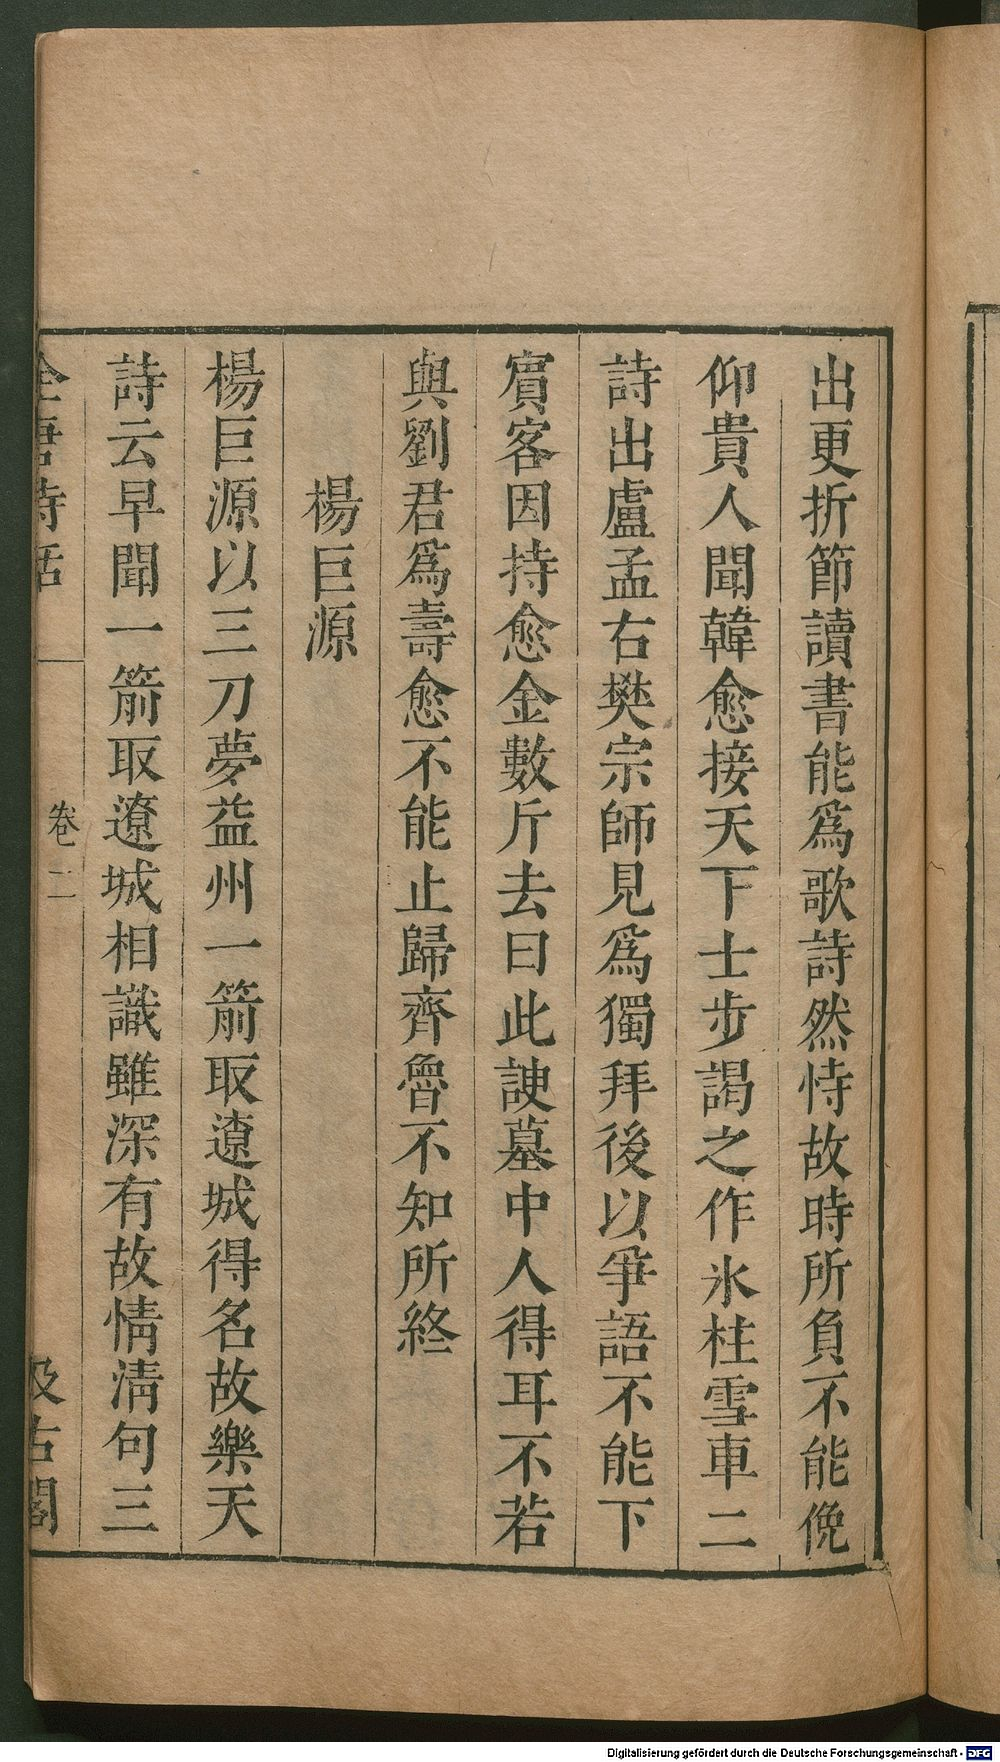 出更折節讀書能爲歌詩然恃故時所負不能俛
仰貴人聞韓愈接天下士步謁之作氷柱雪車二
詩出盧孟右樊宗師見爲獨拜後以爭語不能下
賓客因持愈金數斤去曰此諛墓中人得耳不若
與劉君爲壽愈不能止歸齊魯不知所終
楊巨源
楊巨源以三刀夢益州一箭取遼城得名故樂天
詩云早聞一箭取遼城相識雖深有故情淸句三
全唐詩話 卷二 汲古閣
Digitalisierung gefördert durch die Deutsche Forschungsgemeinschaft - DFG